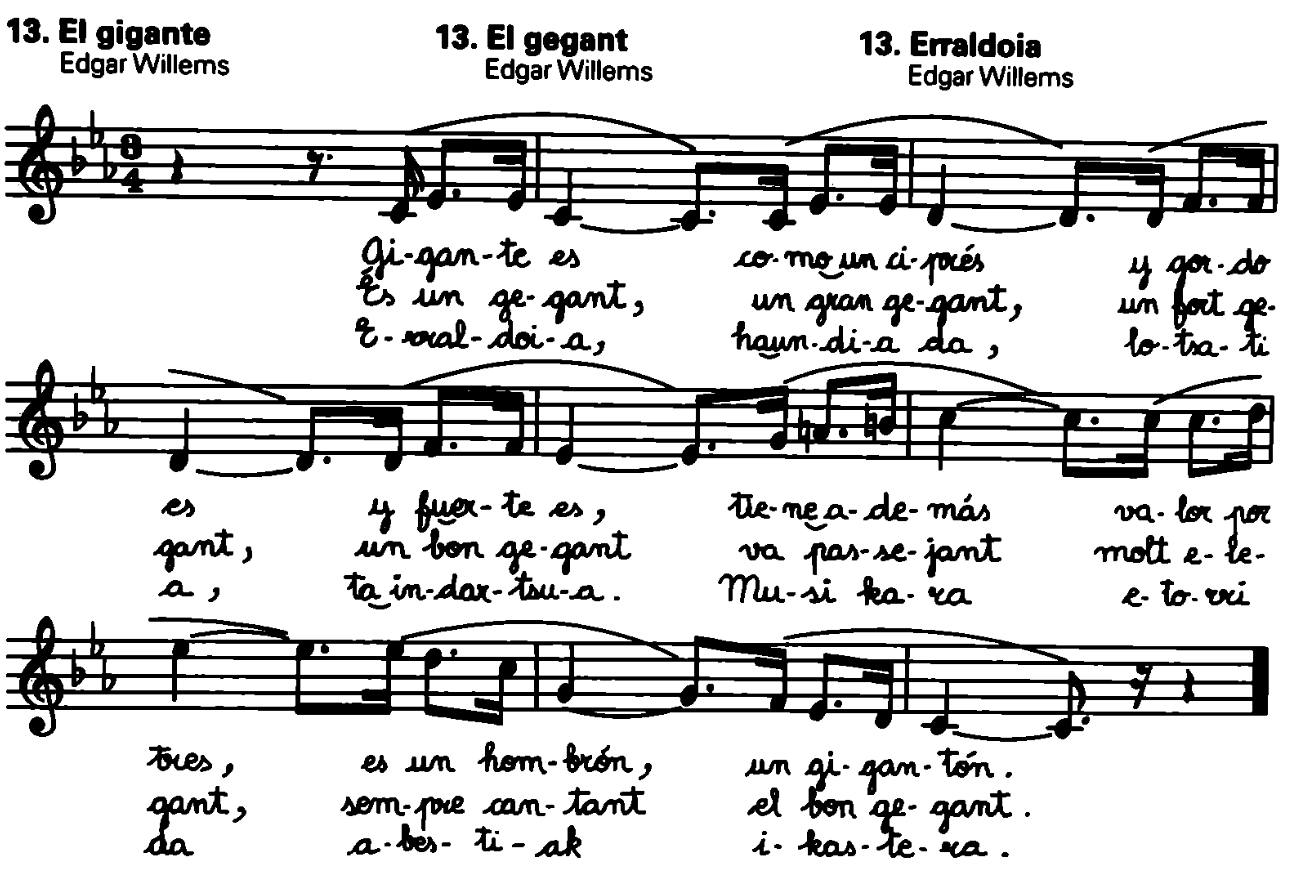 13. El gigante
Edgar Willems
13. El gegant
Edgar Willems
13. Erraldoia
Edgar Willems
3
4
Gi-gan-te es co-mo un ci-prés y gor-do
És un ge-gant, un gran ge-gant, un fort ge-
E-rral-doi-a, haun-di-a da, lo-tsa-ti
es y fuer-te es, tie-ne a-de-más va-lor por
gant, un bon ge-gant va pas-se-jant molt e-le-
a, ta in-dar-tsu-a. Mu-si ka-ra e-to-rri
tres, es un hom-brón, un gi-gan-tón.
gant, sem-pre can-tant el bon ge-gant.
da a-bes-ti-ak i-kas-te-ra.